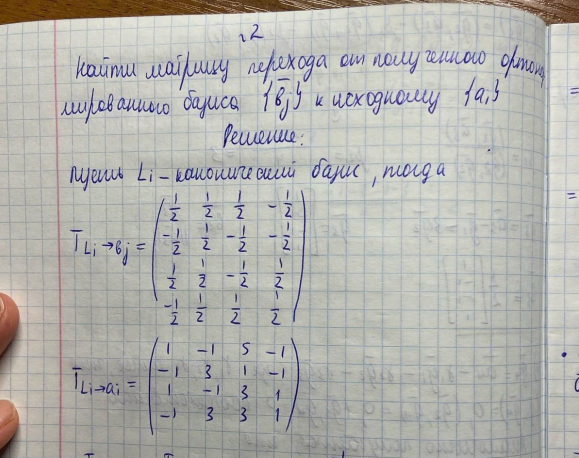 №2
Найти матрицу перехода от полученного ортонор
мированного базиса {b̅j} к исходному {ai}
Решение:
пусть Li - канонический базис, тогда
TLi→bj = (1/2 1/2 1/2 -1/2
-1/2 1/2 -1/2 -1/2
1/2 1/2 -1/2 1/2
-1/2 1/2 1/2 1/2)
TLi→ai = (1 -1 5 -1
-1 3 1 -1
1 -1 3 1
-1 3 3 1)